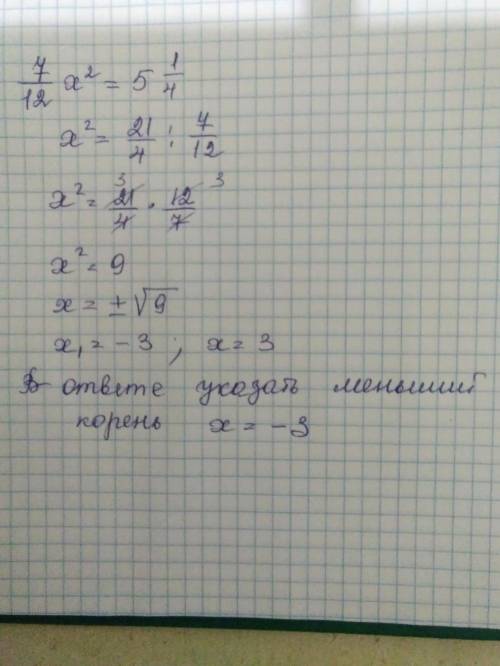 7/12 x² = 5 1/4
x² = 21/4 : 7/12
x² = 21/4 · 12/7 3 3
x² = 9
x = ±√9
x₁ = -3 ; x = 3
В ответе указать меньший
корень x = -3